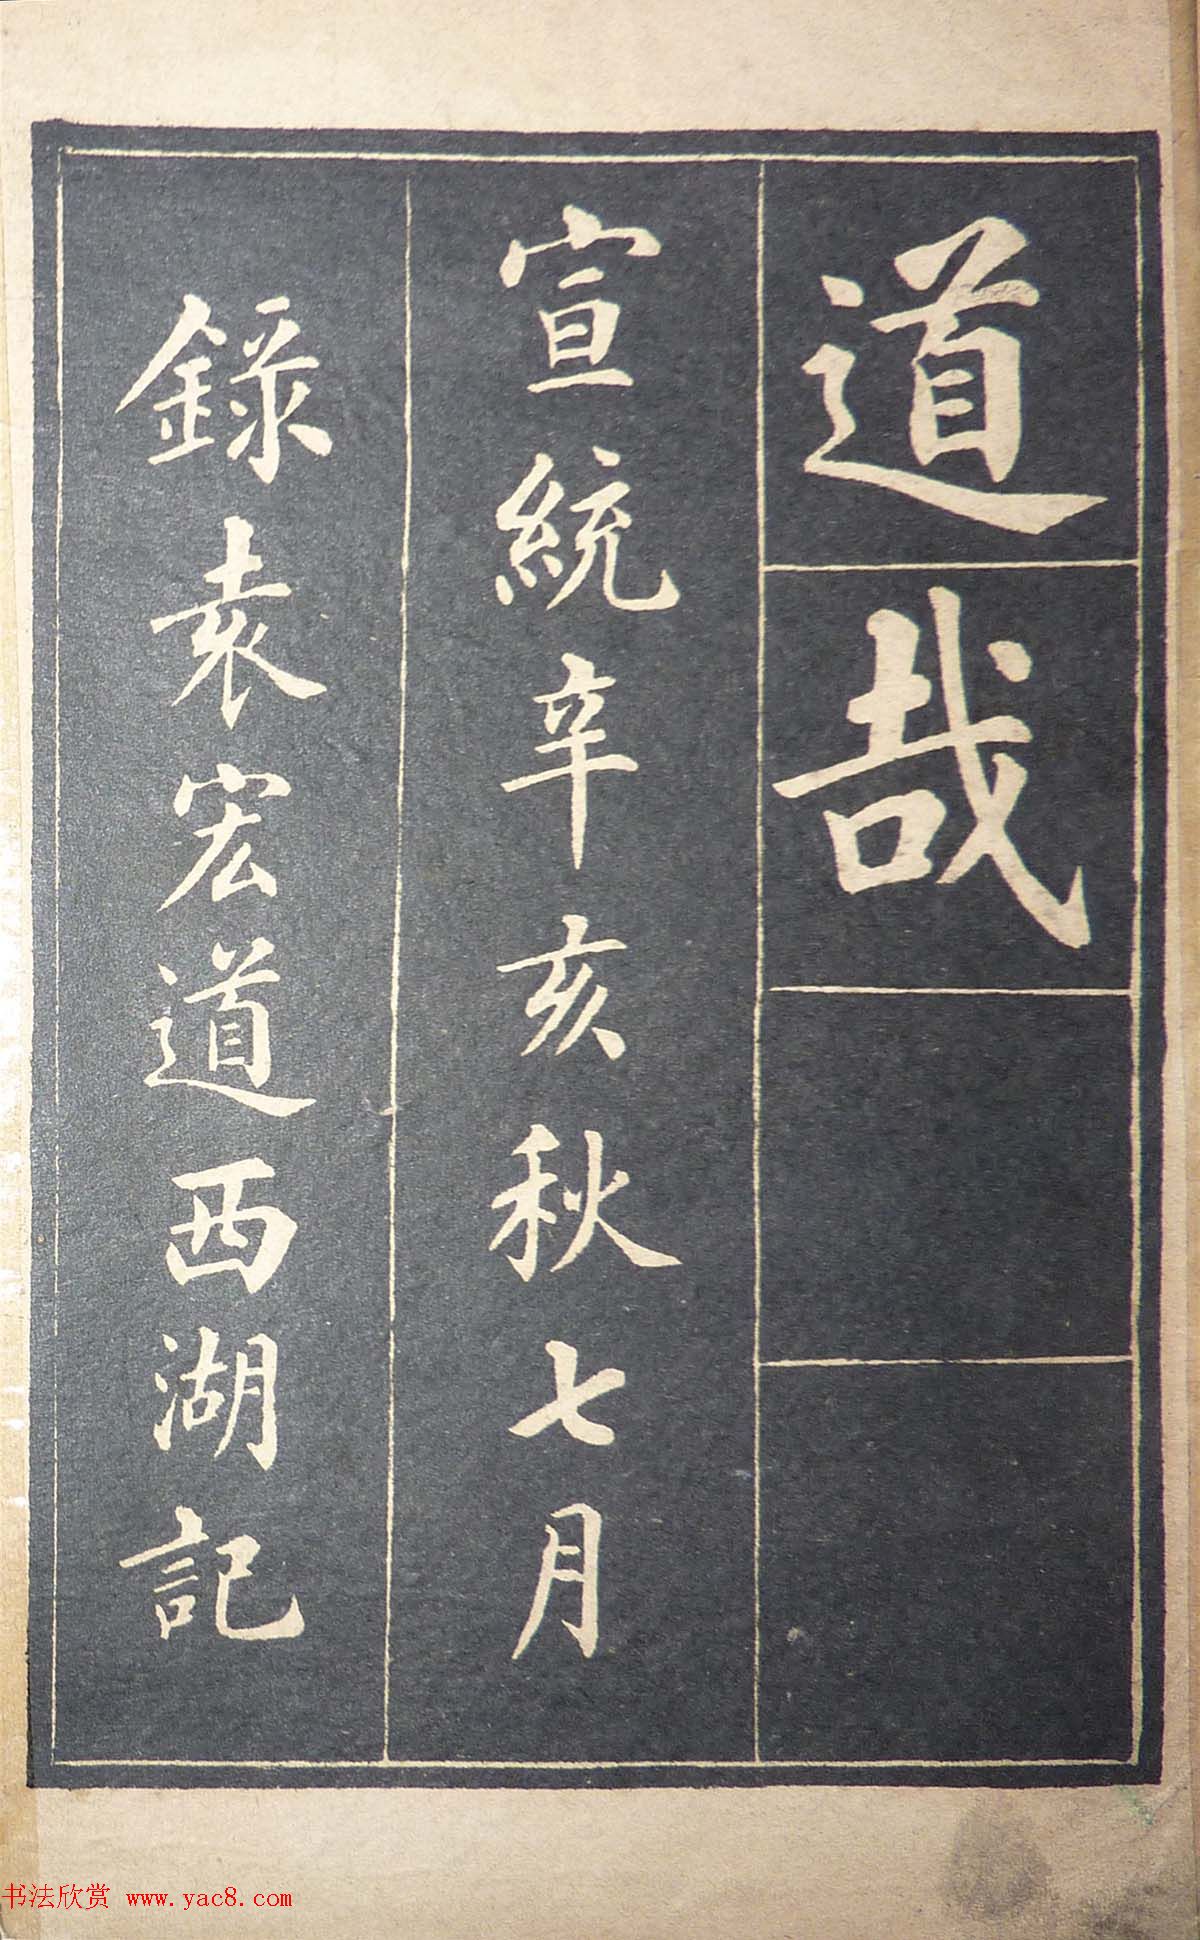 道哉
宣統辛亥秋七月
錄袁宏道西湖記
书法欣赏 www.yac8.com